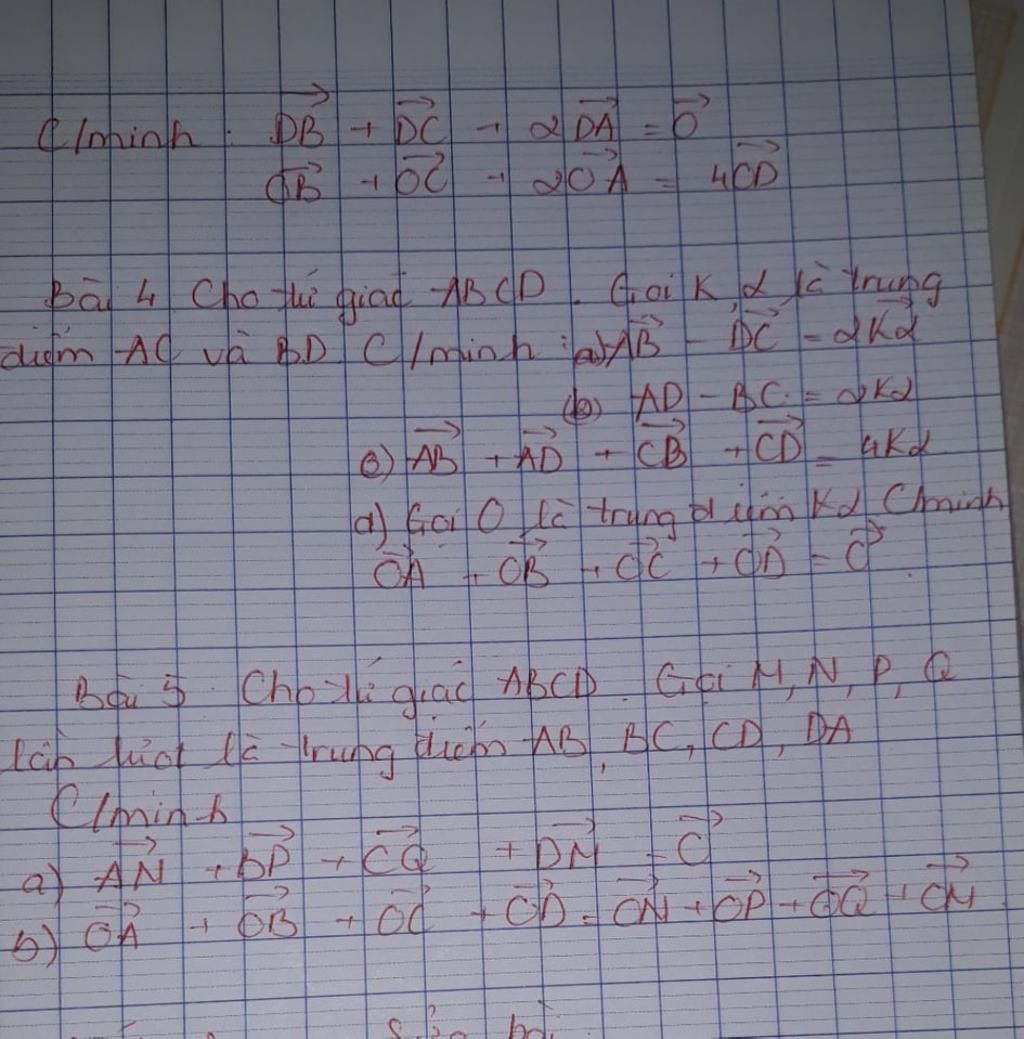 C/minh : DB + DC + 2DA = 0
OB + OC + 2OA = 4OD
Bài 4 Cho tứ giác ABCD. Gọi K, I là trung
điểm AC và BD. C/minh : a) AB - DC = 2KI
b) AD - BC = 2KI
c) AB + AD + CB + CD = 4KI
d) Gọi O là trung điểm KI C/minh
OA + OB + OC + OD = 0
Bài 5 Cho tứ giác ABCD. Gọi M, N, P, Q
lần lượt là trung điểm AB, BC, CD, DA
C/minh
a) AN + BP + CQ + DM = 0
b) OA + OB + OC + OD = ON + OP + OQ + OM